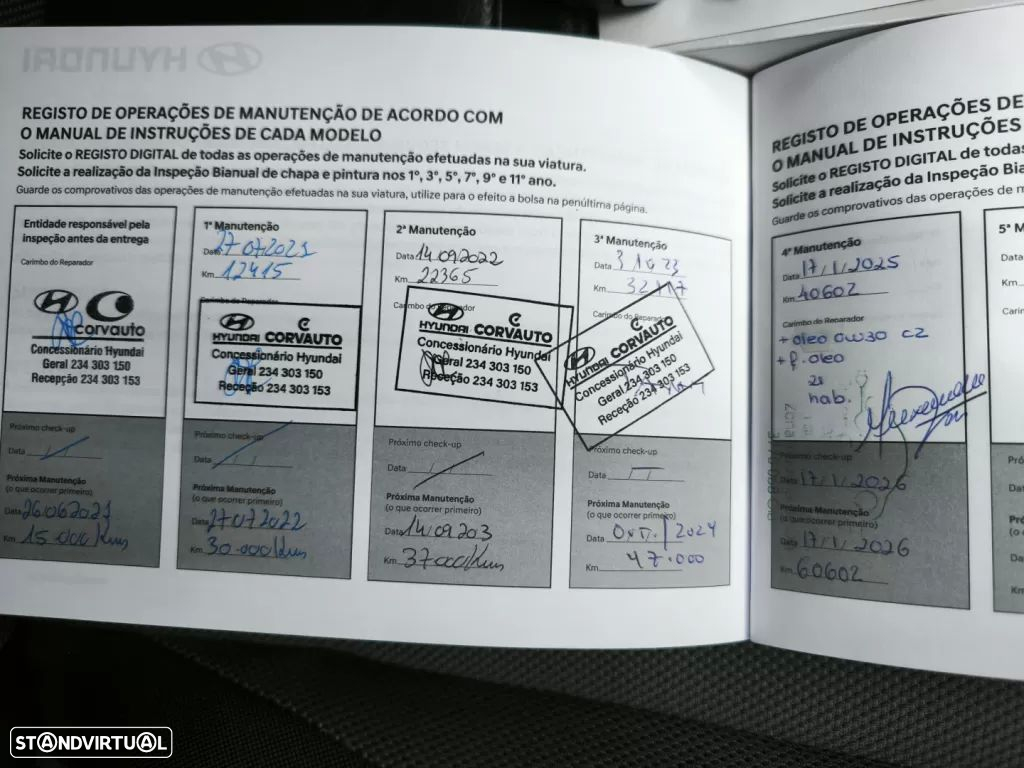 HYUNDAI
REGISTO DE OPERAÇÕES DE MANUTENÇÃO DE ACORDO COM
O MANUAL DE INSTRUÇÕES DE CADA MODELO
Solicite o REGISTO DIGITAL de todas as operações de manutenção efetuadas na sua viatura.
Solicite a realização da Inspeção Bianual de chapa e pintura nos 1º, 3º, 5º, 7º, 9º e 11º ano.
Guarde os comprovativos das operações de manutenção efetuadas na sua viatura, utilize para o efeito a bolsa na penúltima página.
Entidade responsável pela
inspeção antes da entrega
Carimbo do Reparador
corvauto
Concessionário Hyundai
Geral 234 303 150
Recepção 234 303 153
Próximo check-up
Data
Próxima Manutenção
(o que ocorrer primeiro)
Data 26062021
Km 15 000 Kms
1ª Manutenção
Data 27072021
Km 12415
Carimbo do Reparador
HYUNDAI CORVAUTO
Concessionário Hyundai
Geral 234 303 150
Receção 234 303 153
Próximo check-up
Data
Próxima Manutenção
(o que ocorrer primeiro)
Data 27072022
Km 30 000 Kms
2ª Manutenção
Data 14092022
Km 22365
Carimbo do Reparador
HYUNDAI CORVAUTO
Concessionário Hyundai
Geral 234 303 150
Receção 234 303 153
Próximo check-up
Data
Próxima Manutenção
(o que ocorrer primeiro)
Data 1409203
Km 37000 Kms
3ª Manutenção
Data 3 AG 23
Km
Carimbo do Reparador
HYUNDAI CORVAUTO
Concessionário Hyundai
Geral 234 303 150
Receção 234 303 153
Próximo check-up
Data
Próxima Manutenção
(o que ocorrer primeiro)
Data 2024
Km 47.000
REGISTO DE OPERAÇÕES DE
O MANUAL DE INSTRUÇÕES
Solicite o REGISTO DIGITAL de todas
Solicite a realização da Inspeção Bia
Guarde os comprovativos das operações de m
4ª Manutenção
Data 17/1/2025
Km 40602
Carimbo do Reparador
+ oleo 0W30 C2
+ f. oleo
hab.
check-up
17/1/2026
Manutenção
(o que ocorrer primeiro)
Data 17/1/2026
Km 60602
5ª M
Data
Km
Carim
Pró
Data
Pró
(o
Da
Km
STANDVIRTUAL